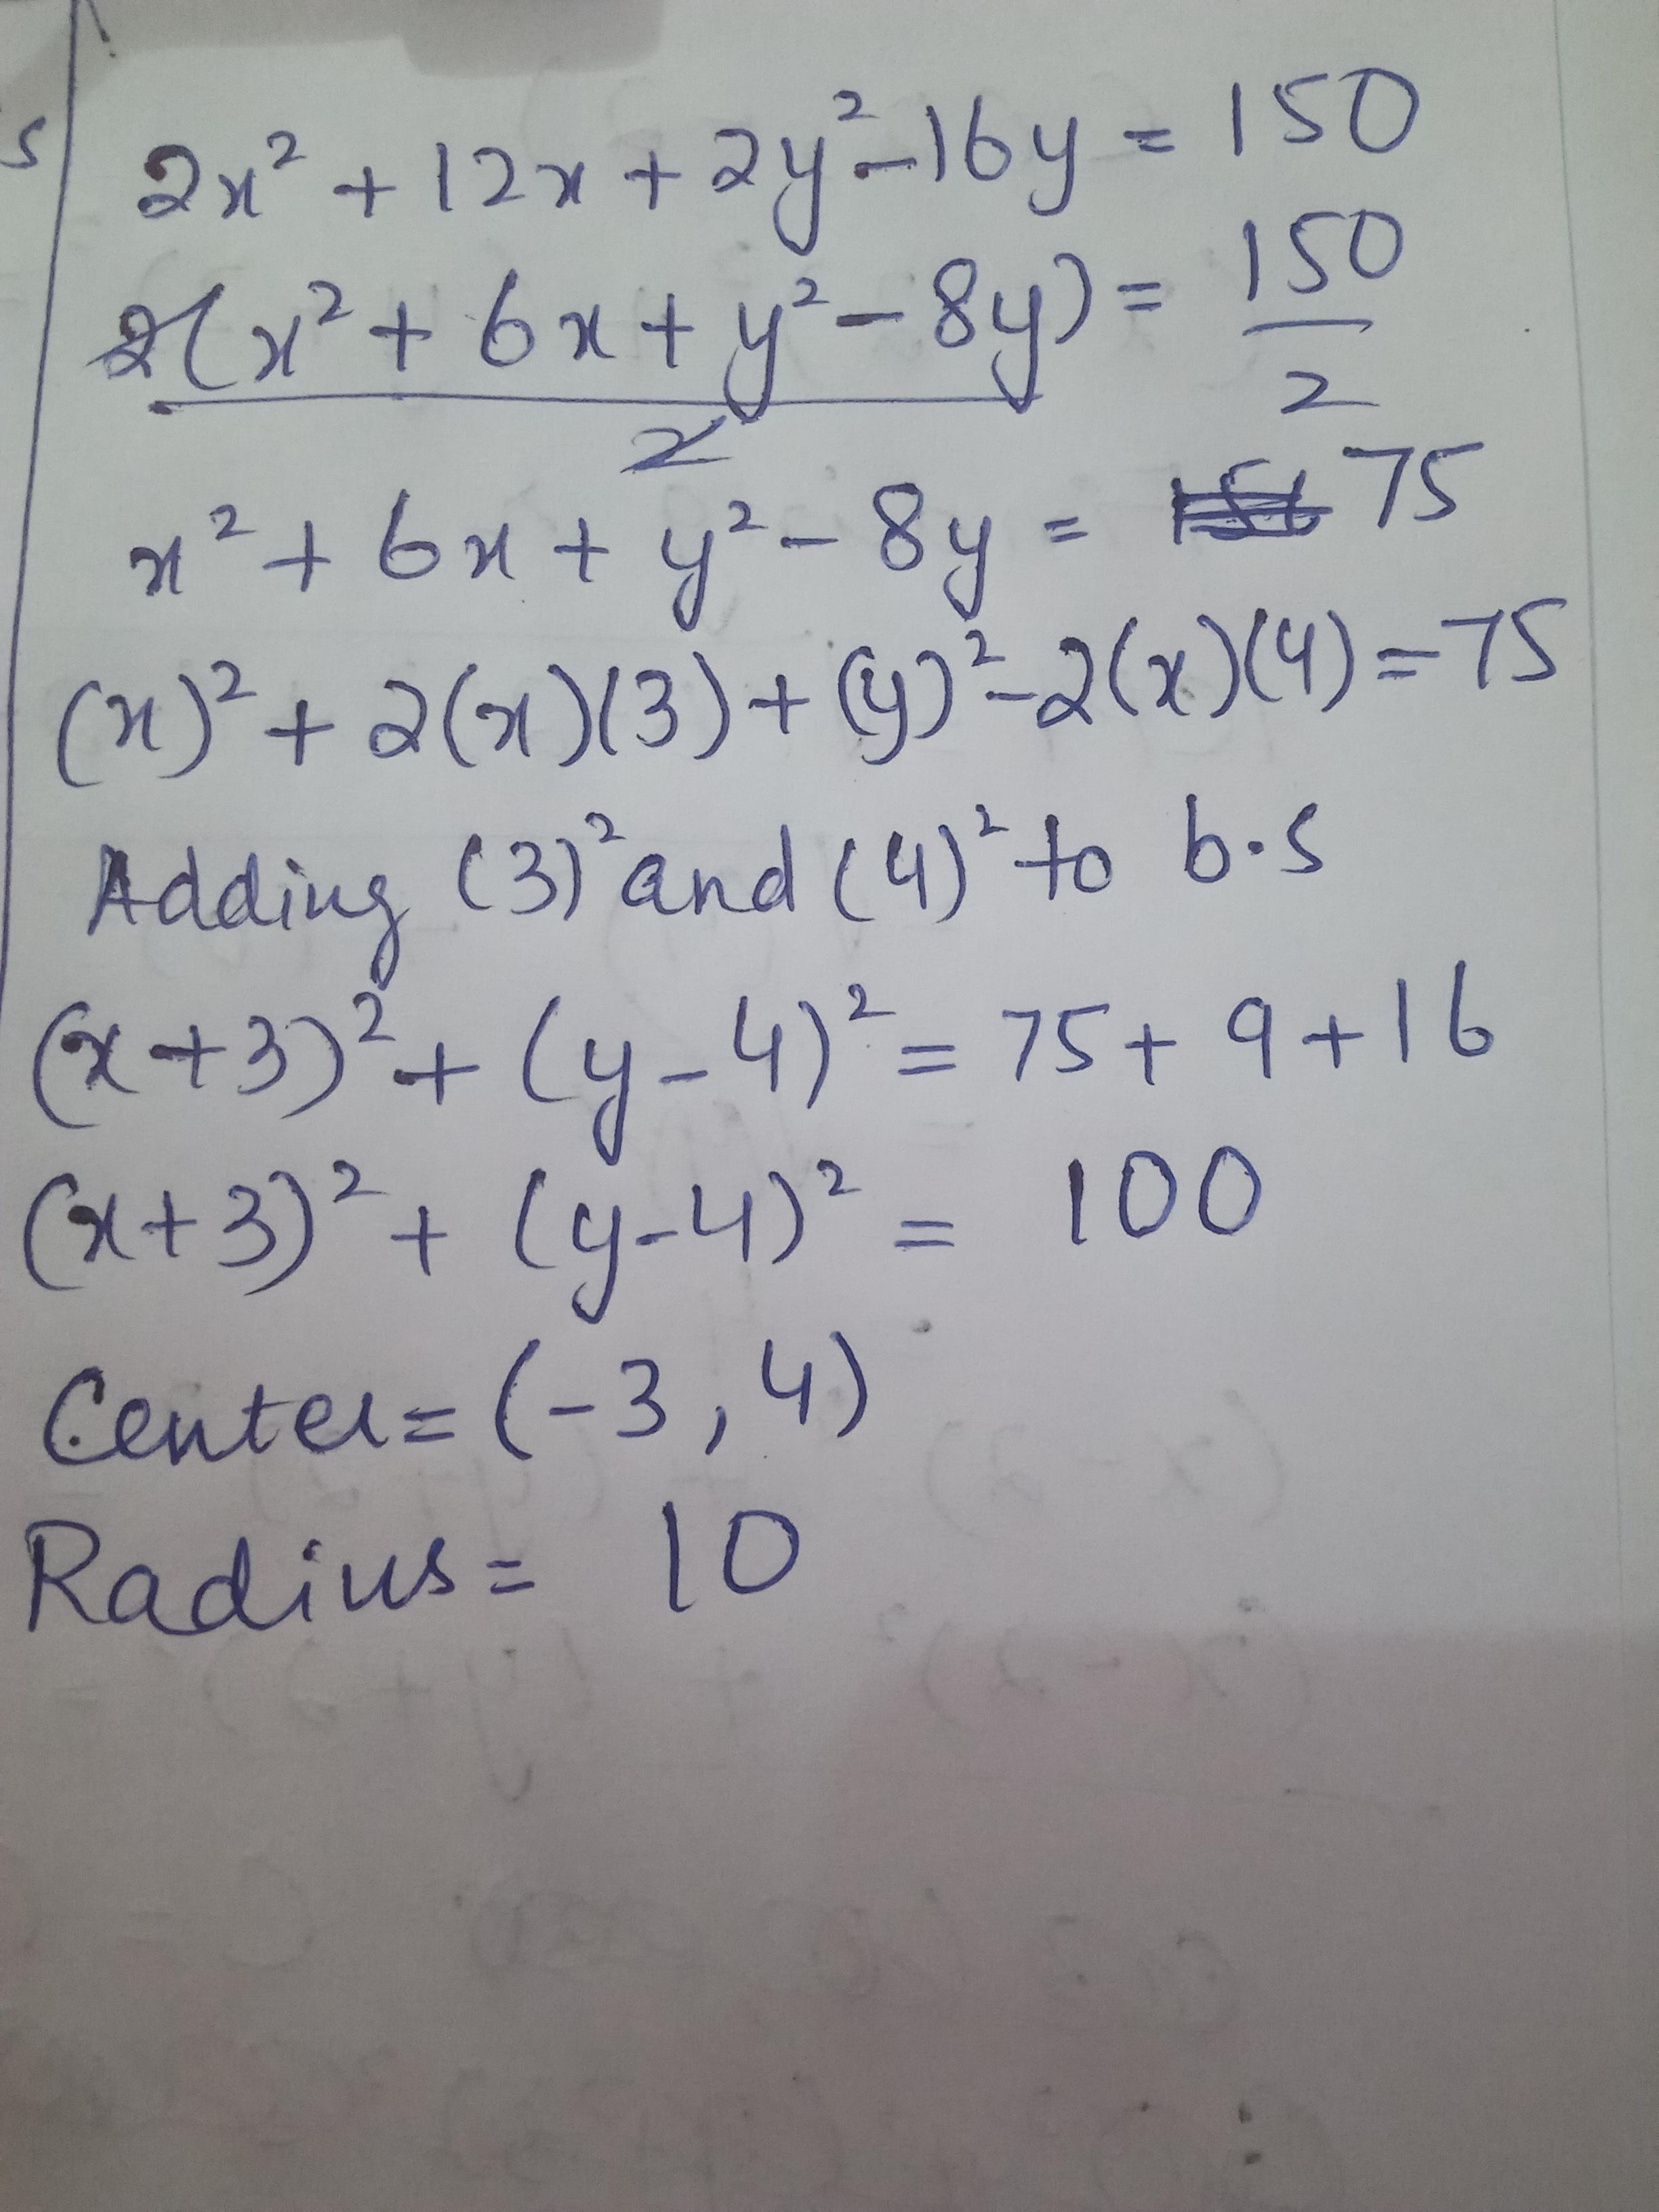 s
2x² + 12x + 2y² - 16y = 150
2(x² + 6x + y² - 8y) / 2 = 150 / 2
x² + 6x + y² - 8y = 75
(x)² + 2(x)(3) + (y)² - 2(x)(4) = 75
Adding (3)² and (4)² to b.s
(x+3)² + (y-4)² = 75 + 9 + 16
(x+3)² + (y-4)² = 100
Center = (-3, 4)
Radius = 10